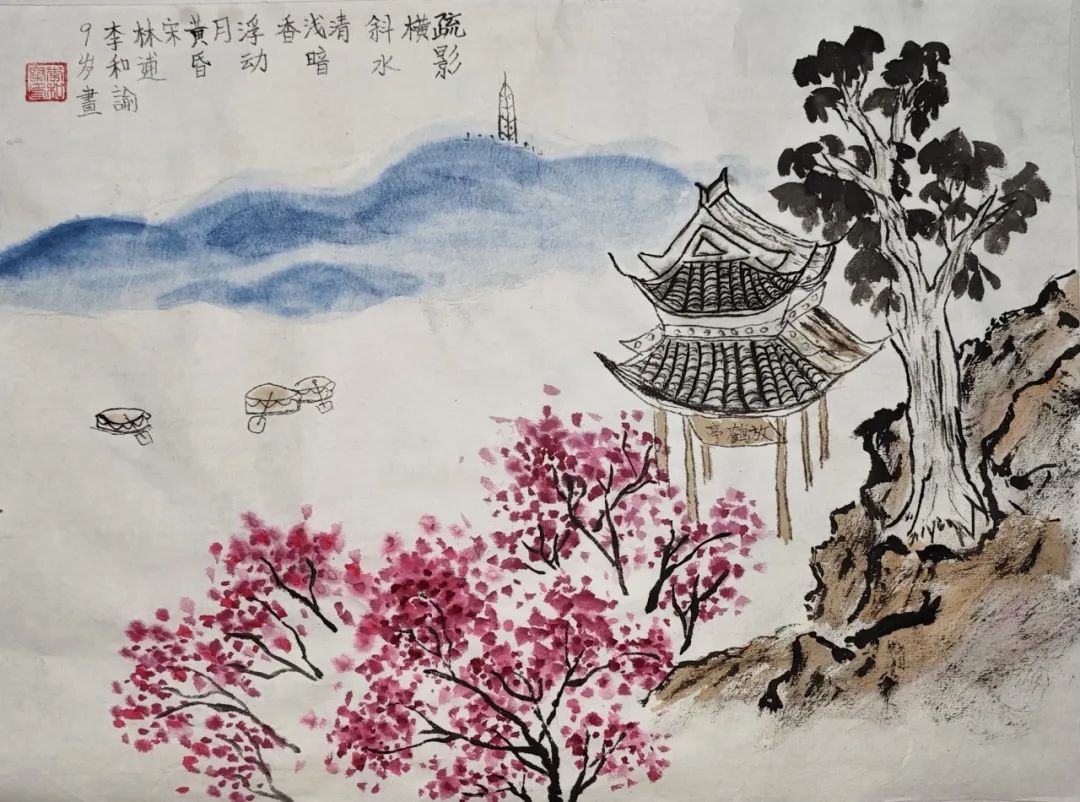 疏影
横
斜水
清
浅暗
香
浮动
月
黃昏
宋
林逋
李和諭
9岁畫
放鶴亭